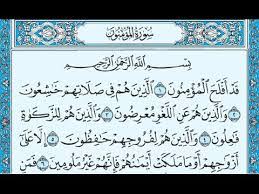 سُورَةُ الْمُؤْمِنُونَ
بِسْمِ اللَّهِ الرَّحْمَٰنِ الرَّحِيمِ
قَدْ أَفْلَحَ الْمُؤْمِنُونَ ١ الَّذِينَ هُمْ فِي صَلَاتِهِمْ خَٰشِعُونَ
٢ وَالَّذِينَ هُمْ عَنِ اللَّغْوِ مُعْرِضُونَ ٣ وَالَّذِينَ هُمْ لِلزَّكَوٰةِ
فَٰعِلُونَ ٤ وَالَّذِينَ هُمْ لِفُرُوجِهِمْ حَٰفِظُونَ ٥ إِلَّا عَلَىٰ
أَزْوَٰجِهِمْ أَوْ مَا مَلَكَتْ أَيْمَٰنُهُمْ فَإِنَّهُمْ غَيْرُ مَلُومِينَ ٦ فَمَنِ